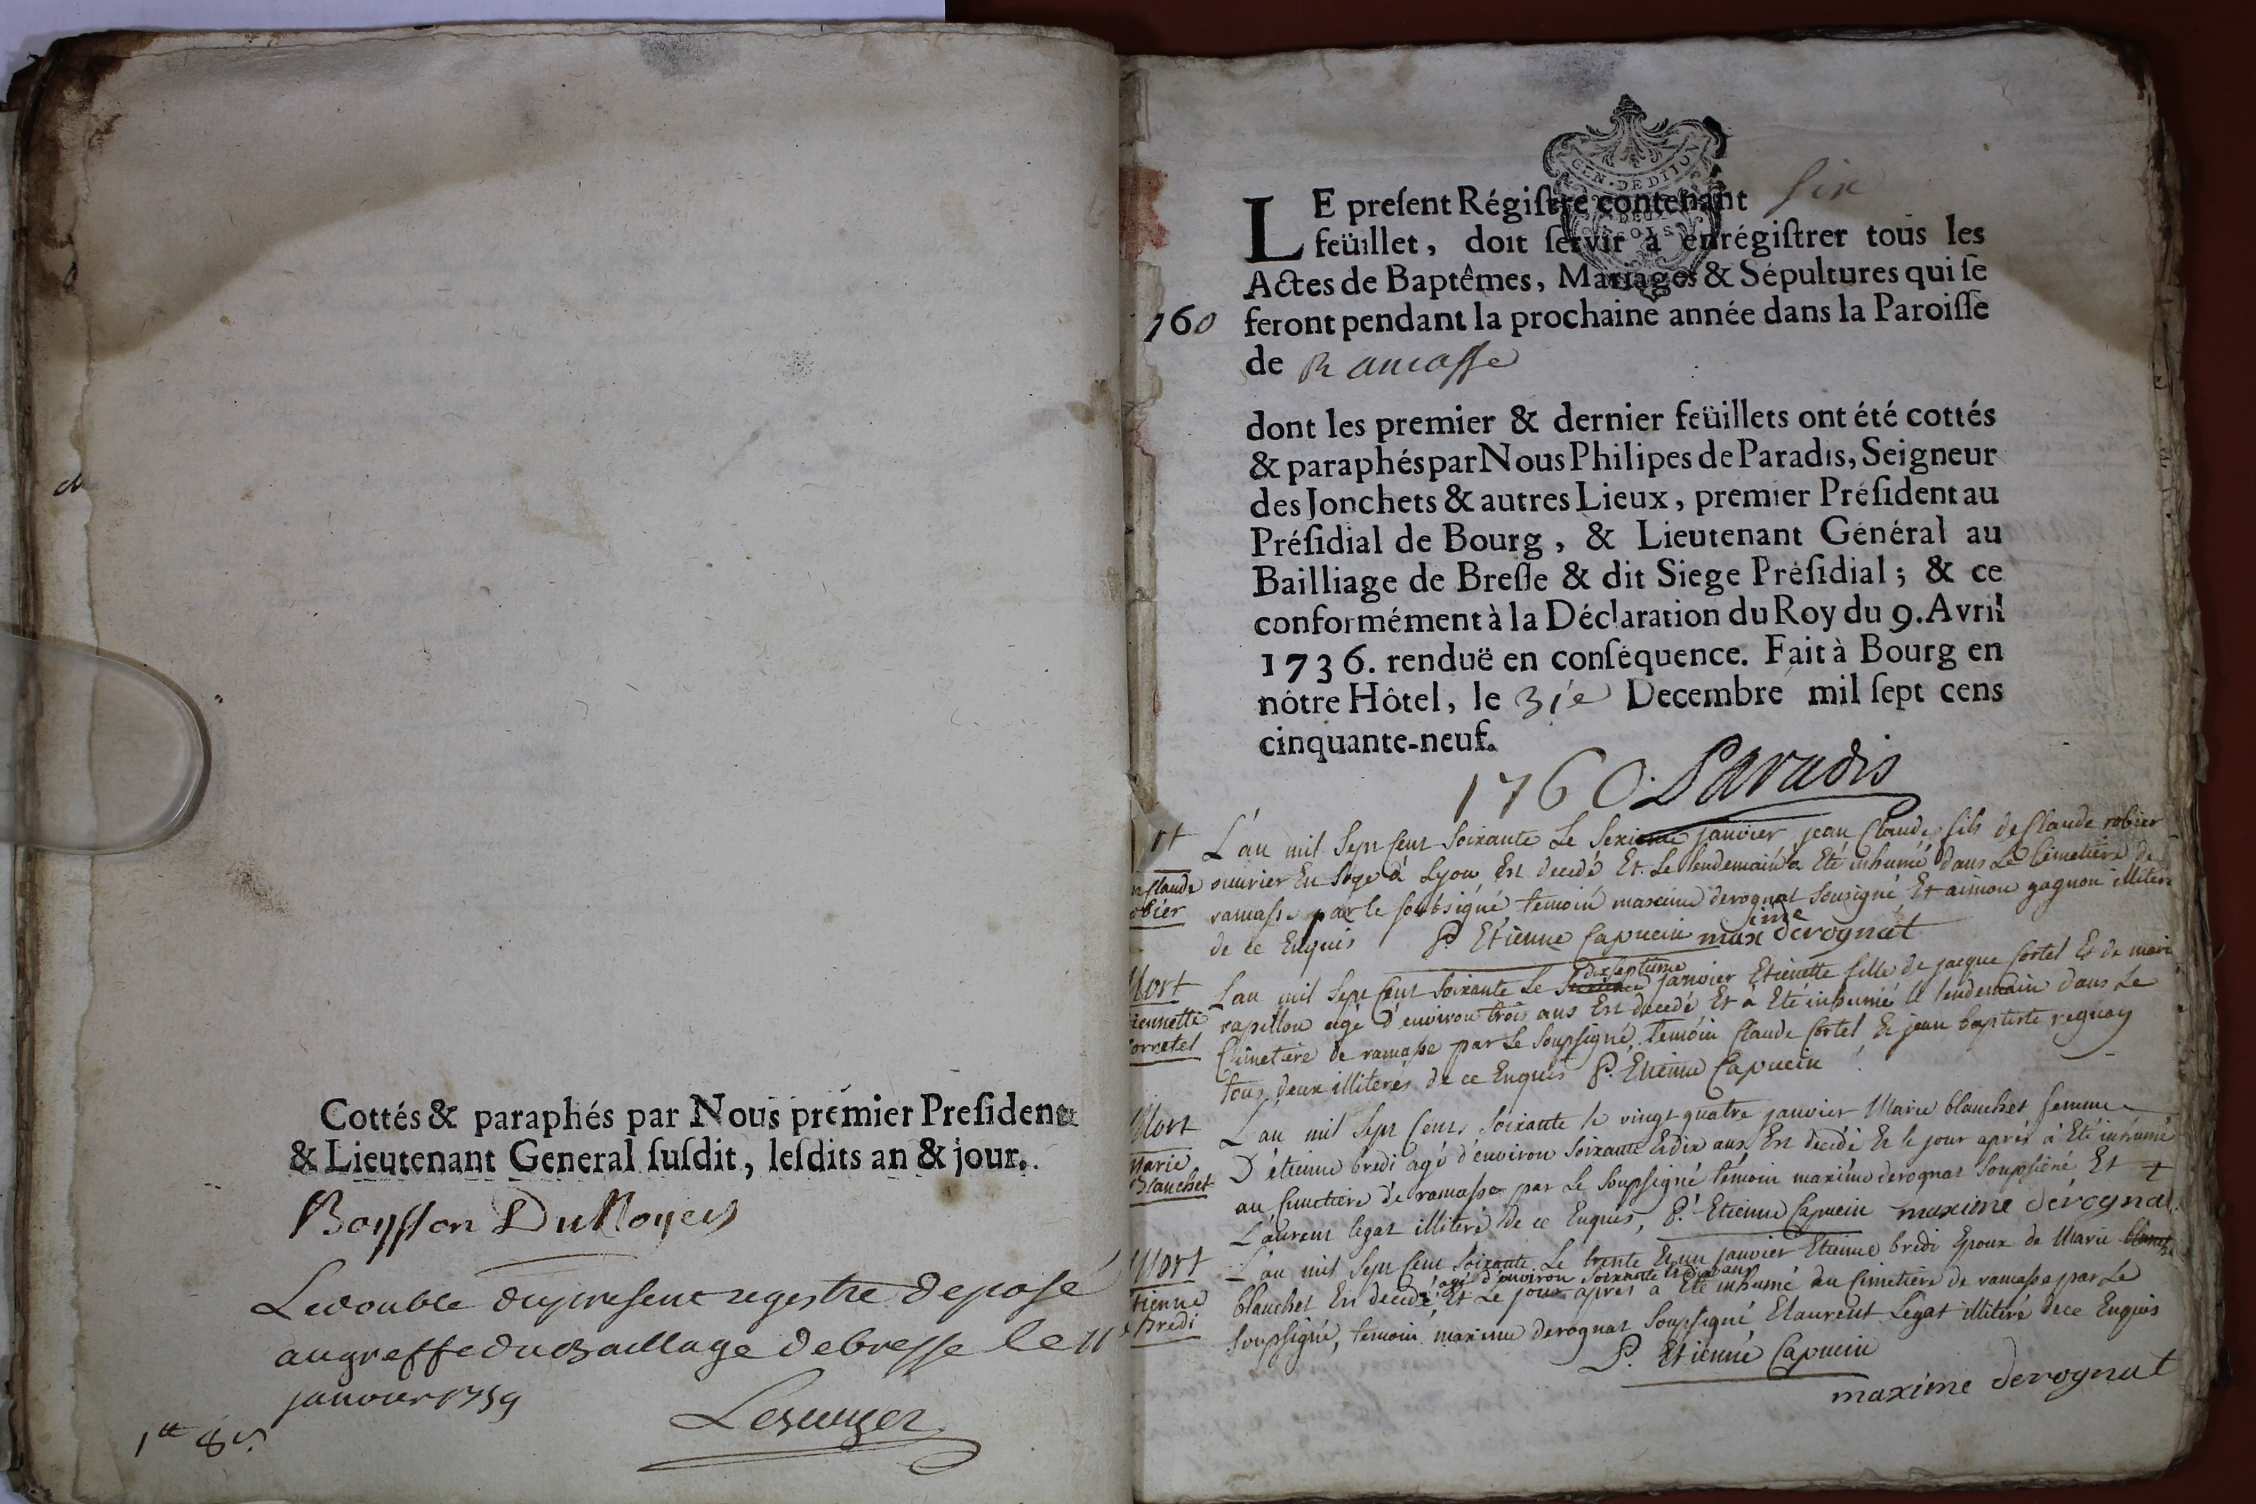 Cottés & paraphés par Nous premier Preſident
& Lieutenant General ſuſdit, leſdits an & jour.
Boysson DuNoyer
Ledouble dupresent registre deposé
augreffe du Baillage debresse le 11
janvier 1759
1tt 8s.
GEN. DE DIJON
DEUX
SOLS
LE preſent Régiſtre contenant six
feüillet, doit ſervir à enrégiſtrer tous les
Actes de Baptêmes, Mariages & Sépultures qui ſe
760 feront pendant la prochaine année dans la Paroiſſe
de Ramasse
dont les premier & dernier feüillets ont été cottés
& paraphés par Nous Philipes de Paradis, Seigneur
des Jonchets & autres Lieux, premier Préſident au
Préſidial de Bourg, & Lieutenant Général au
Bailliage de Breſſe & dit Siege Préſidial; & ce
conformément à la Déclaration du Roy du 9. Avril
1736. renduë en conſéquence. Fait à Bourg en
nôtre Hôtel, le 31e Decembre mil ſept cens
cinquante-neuf.
1760. Paradis
L'an mil sept cent soixante le janvier jean Claude fils de Claude robier
ouvrier En à Lyon Est decedé Et le lendemain à Eté inhumé dans le Cimetiere de
ramasse par le soubsigné, temoin maxime derognat sousigné Et aimon gagnon illiteré
de ce Enquis P. Etienne Capucin maxime derognat
Mort
L'an mil sept Cent soixante Le dixseptieme janvier Etienette fille de jacque Cortel Et de marie
rapillou agé d'environ trois ans Est decedé Et à Eté inhumé le lendemain dans Le
Cimetiere de ramasse par Le soupsigné, temoin Claude Cortel Et jean baptiste reguay
tous deux illiterés de ce Enquis P. Etienne Capucin
Mort
Marie
Blanchet
L'an mil sept Cent soixante le vingt quatre janvier Marie blanchet femme
D'étienne bredi agé d'environ soixante Et dix ans Est decédé Et le jour après à Eté inhumé
au Cimetiere de ramasse par Le soupsigné temoin maxime derognat soupsigné Et
Laurent legat illiteré de ce Enquis, P. Etienne Capucin maxime derognat
Mort
tienne
Bredi
L'an mil sept Cent soixante Le trente Et un janvier Etienne bredi Epoux de Marie
blanchet agé d'environ soixante Et dix ans Est decedé Et Le jour après à Eté inhumé au Cimetiere de ramasse par Le
soupsigné, temoin maxime derognat soupsigné Et laurent Legat illiteré de ce Enquis
P. Etienne Capucin
maxime derognat